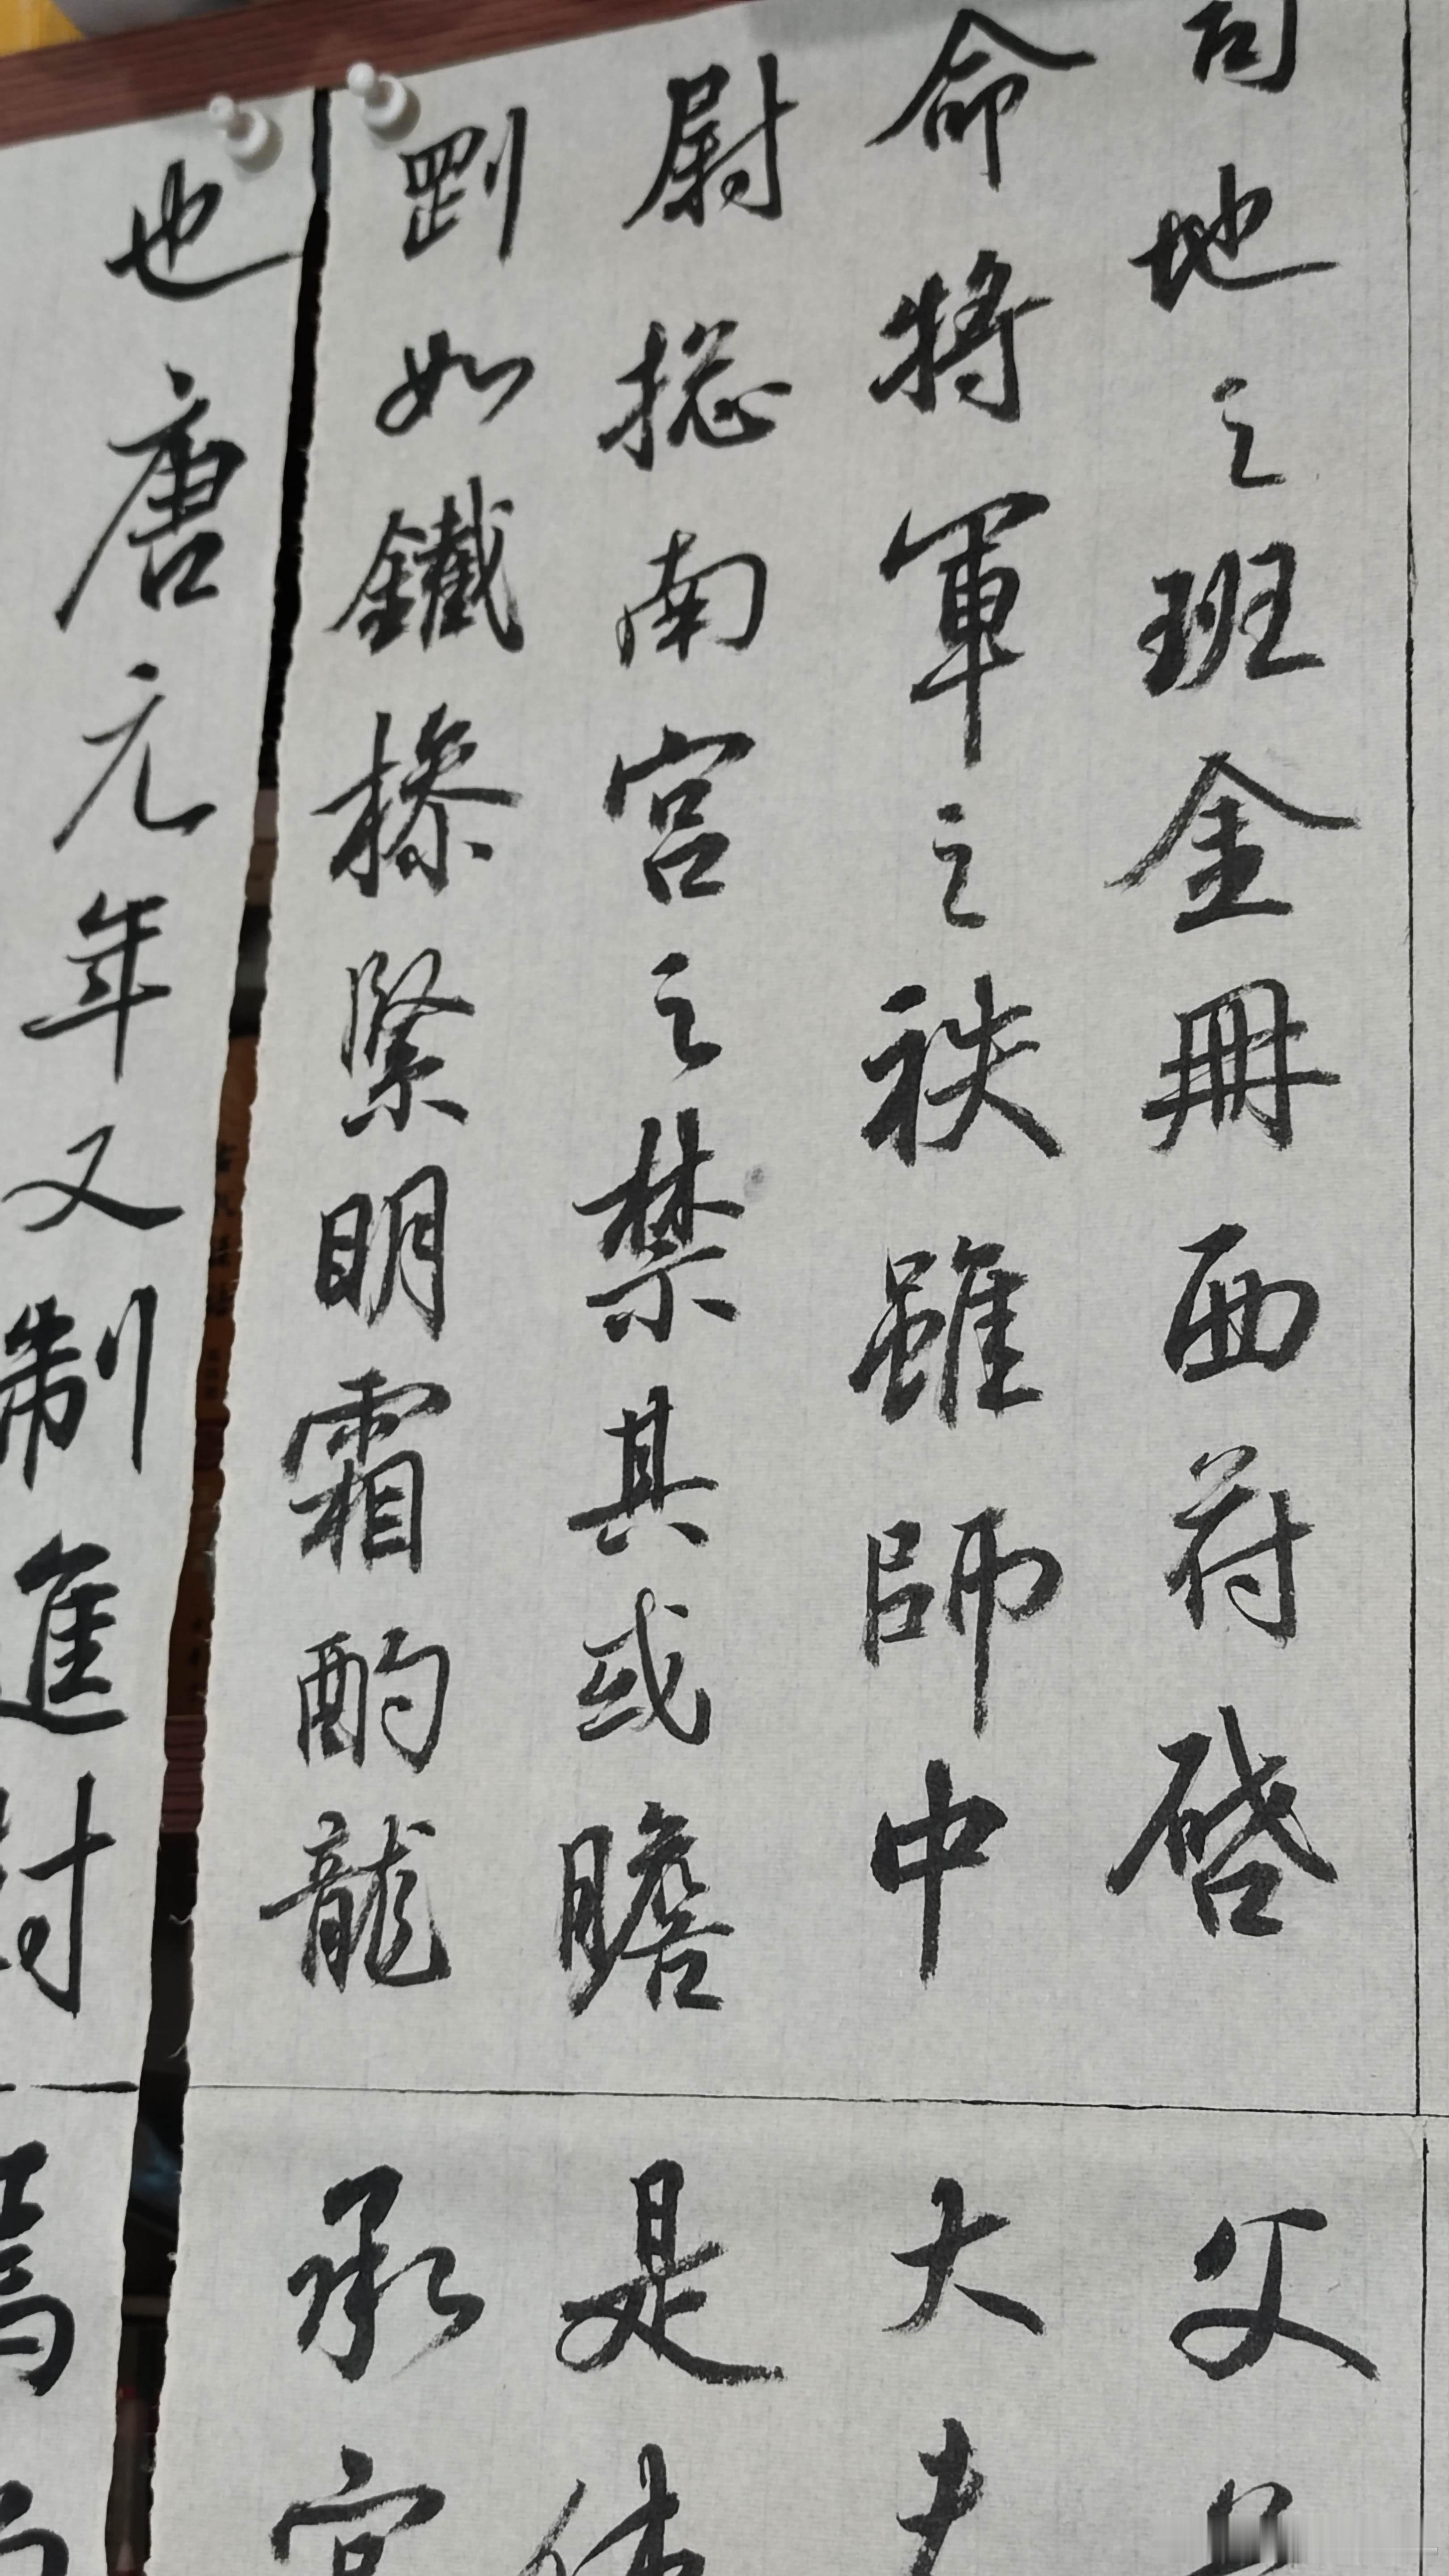 地之班金冊西符啓
命將軍之秩雖師中
尉揔南宮之禁其或瞻
剛如鐵緊明霜酌龍
父
大夫
是
承宮
也唐元年又制進封